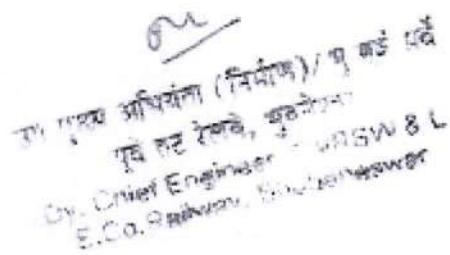 उप मुख्य अभियंता (निर्माण)/
पूर्व तट रेलवे, भुवनेश्वर
Dy. Chief Engineer SW & L
E.Co.Railway, Bhubaneswar